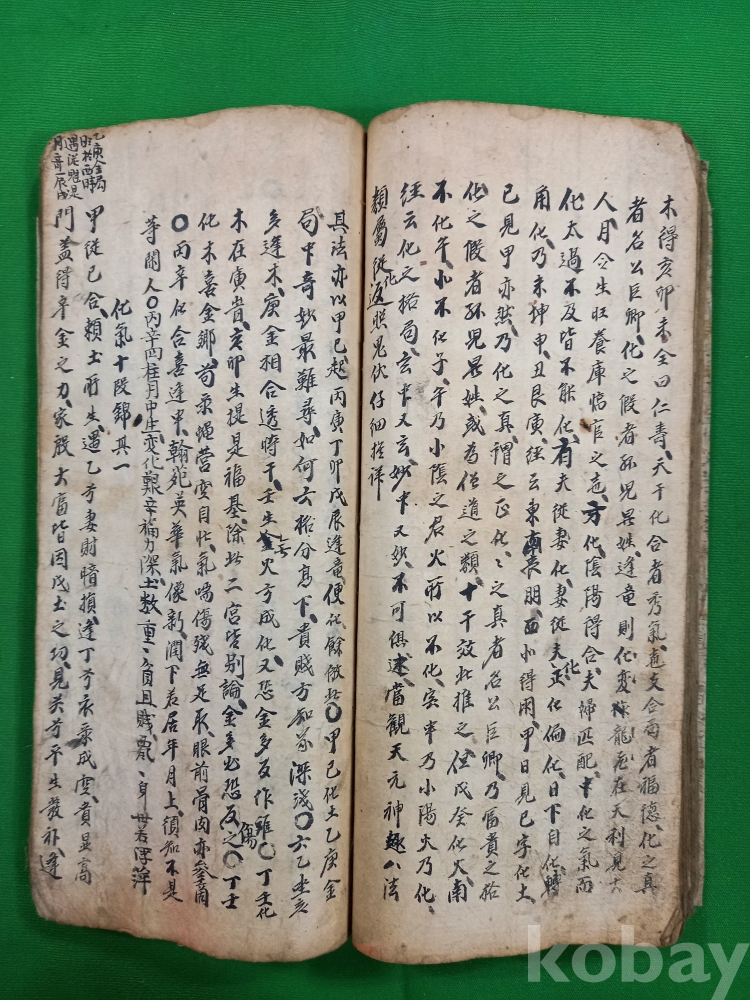 木得亥卯未全曰仁壽天干化合者秀氣地支合局者福德化之真
者名公巨卿化之假者孤兒異姓逢龍則化變作龍飛在天利見大
人月令生旺養庫臨官之地方化陰陽得合夫婦匹配中化之氣而
化太過不及皆不能化有夫從妻化妻從夫化正化偏化日下自化轉
角化乃未坤申丑艮寅經云東南喪朋西北得朋甲日見己字化土
己見甲亦然乃化之真謂之正化々之真者名公巨卿乃富貴之格
化之假者孤兒異姓或為僧道之類十干效此推之但戊癸化火南
不化午北不化子午乃少陰之君火所以不化寅中乃少陽火乃化
經云化之格局玄中又玄妙中又妙不可俱述當觀天元神趣八法
類屬從化返照鬼伏仔細推詳
其法亦以甲己起丙寅丁卯戊辰逢龍便化餘倣此〇甲己化土乙庚金
局中奇妙最難尋如何六格分高下貴賤方知氣深淺〇六乙坐亥
多逢木庚金相合透時干壬生金火方成化又恐金多反作難〇丁壬化
木在寅貴亥卯生提是福基除此二宮皆別論金多尤恐反傷之〇丁壬
化木喜金鄉苟求蠅營空自忙氣喘傷殘無足取眼前骨肉亦參商
〇丙辛化合喜逢申翰苑英華氣像新潤下若居年月上須知不是
等閑人〇丙辛四柱月中生變化艱辛福力深土數重々貧且賤亂々身世若浮萍
化氣十段錦其一
甲從己合賴土所生遇乙兮妻財暗損逢丁兮衣祿成空貴显高
門蓋得辛金之力家殷大富皆因戊土之功見癸兮平生發福逢
乙庚金局
旺於酉時
遇從魁是
月奇辰戌
kobay